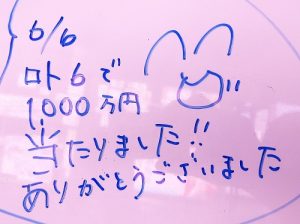 6/6
ロト6で
1,000万円
当たりました!!
ありがとうございました